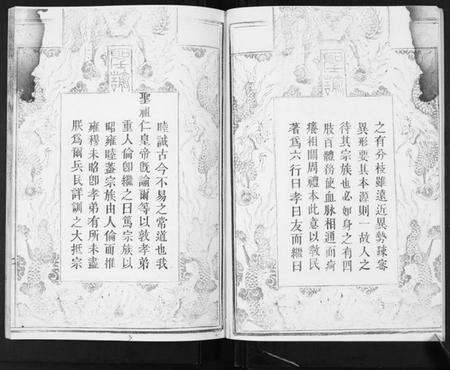 聖諭
之有分枝雖遠近異勢疎密
異形要其本源則一故人之
待其宗族也必如身之有四
肢百體務使血脉相通而疴
癢相關周禮本此意以教民
著爲六行曰孝曰友而繼曰
聖諭
睦誠古今不易之常道也我
聖祖仁皇帝既諭爾等以敦孝弟
重人倫即繼之曰篤宗族以
昭雍睦蓋宗族由人倫而推
雍穆未昭即孝弟有所未盡
朕爲爾兵民詳訓之大抵宗